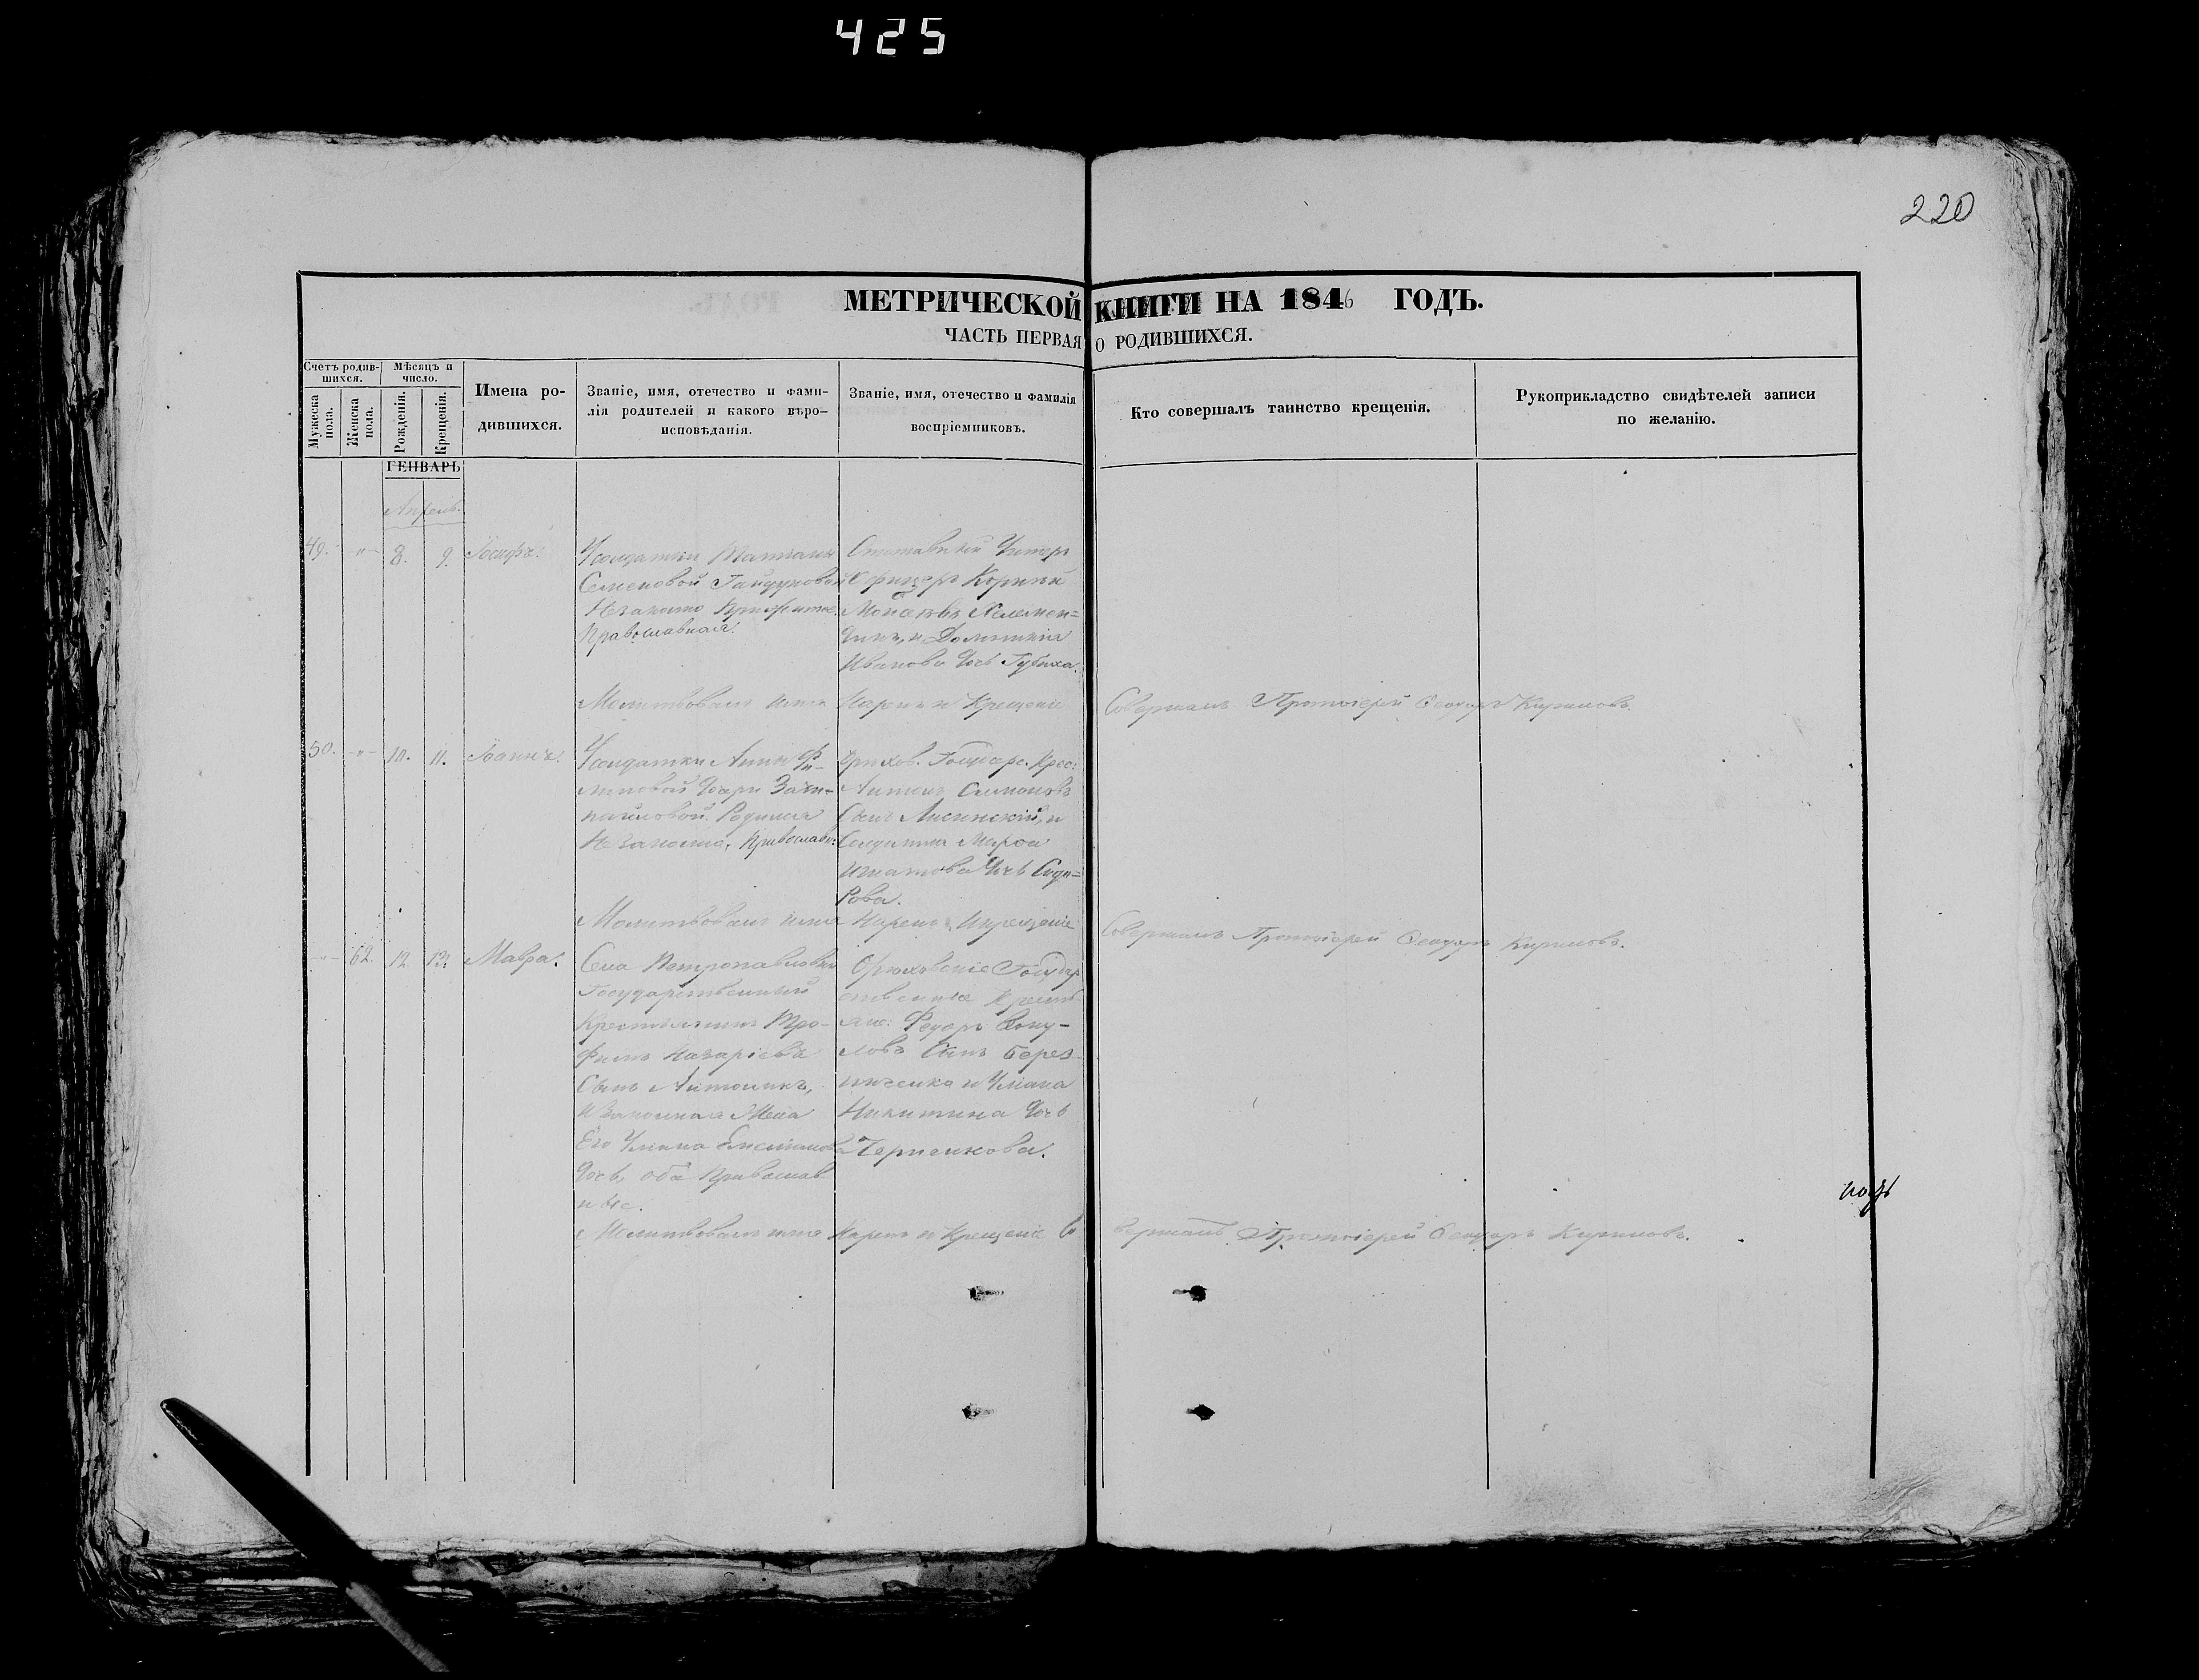 425
220
МЕТРИЧЕСКОЙ КНИГИ НА 1846 ГОДЪ.
ЧАСТЬ ПЕРВАЯ О РОДИВШИХСЯ.
Счетъ родив-
шихся.
Мѣсяцъ и
число.
Мужеска
пола.
Женска
пола.
Рожденія.
Крещенія.
Имена ро-
дившихся.
Званіе, имя, отечество и фами-
лія родителей и какого вѣро-
исповѣданія.
Званіе, имя, отечество и фамилія
воспріемниковъ.
Кто совершалъ таинство крещенія.
Рукоприкладство свидѣтелей записи
по желанію.
ГЕНВАРЬ
Апрель.
49. -"- 8. 9. Іосифъ.
Семеновой Гайдуковой
Православная.
Отставной Унтеръ
Офицеръ
Иванова дочь
Молитвовалъ имя Нарекъ и Крещеніе Совершалъ Протоіерей Феодоръ Кириловъ.
50. -"- 10. 11. Іоаннъ.
Солдатки Анны Фи-
липовой дочери
Родился
Православн:
Государ. Крес:
Антонъ Симоновъ
Сынъ Лисинскій, и
Солдатка Марфа
Игнатова дочь Сидо=
рова.
Молитвовалъ имя Нарекъ и Крещеніе Совершалъ Протоіерей Феодоръ Кириловъ.
-"- 62. 12. 13. Мавра.
Села Петропавловки
Государственный
Крестьянинъ Тро-
фимъ Назаріевъ
Сынъ Антоникъ,
и Законная Жена
Его Ульяна
дочь, оба Православ
ные.
Орѣховскіе Государ
ственные Крестья
не: Федоръ
ловъ Сынъ Берез-
ниченко и Ульяна
Никитина дочь
Черненкова.
Молитвовалъ имя Нарекъ и Крещеніе Со вершалъ Протоіерей Феодоръ Кириловъ.